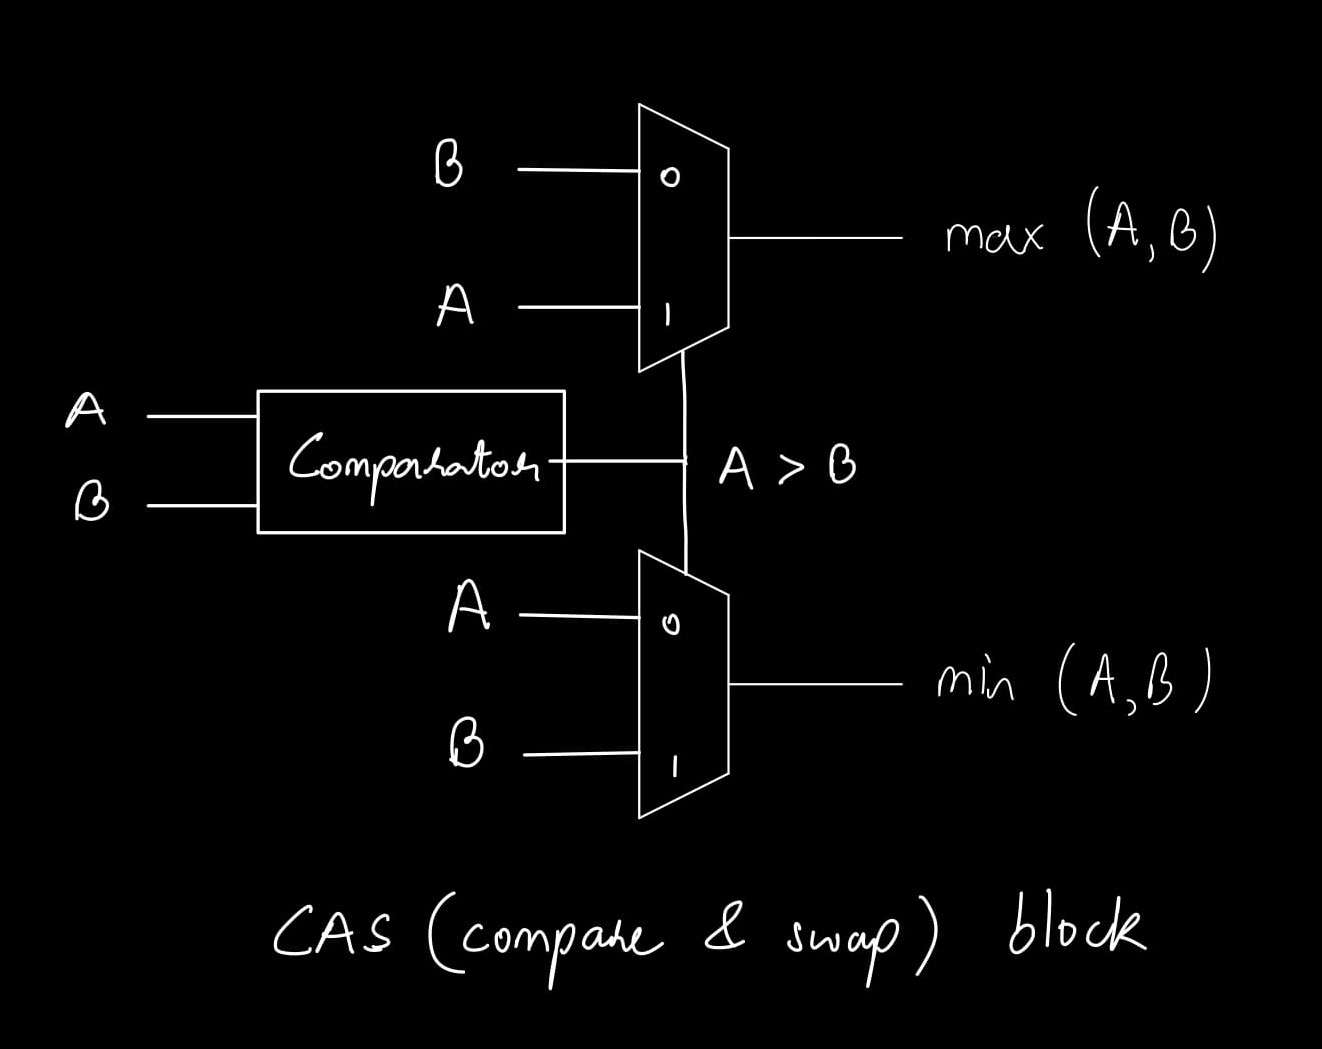 B
0
max (A,B)
A
1
A
Comparator
A > B
B
A
0
min (A,B)
B
1
CAS (compare & swap) block